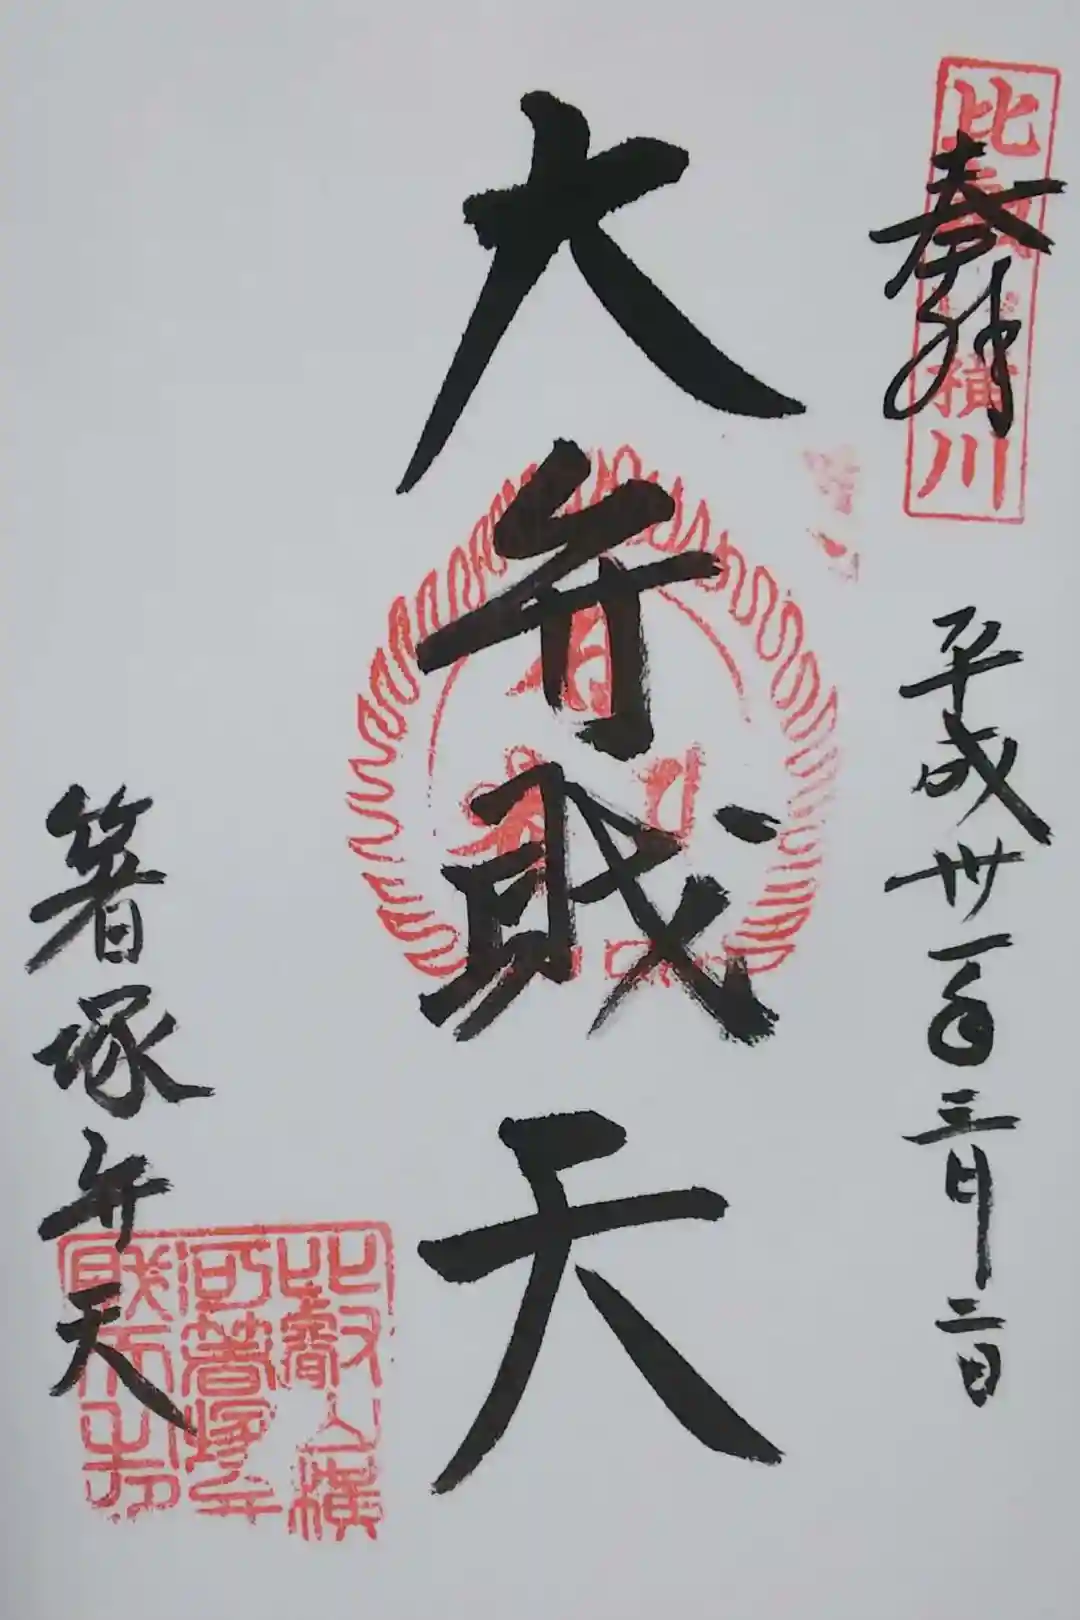 奉拝
比叡山横川
平成卅一年三月三日
大弁財天
箸塚弁天
比叡山横
河箸塚弁
財天印